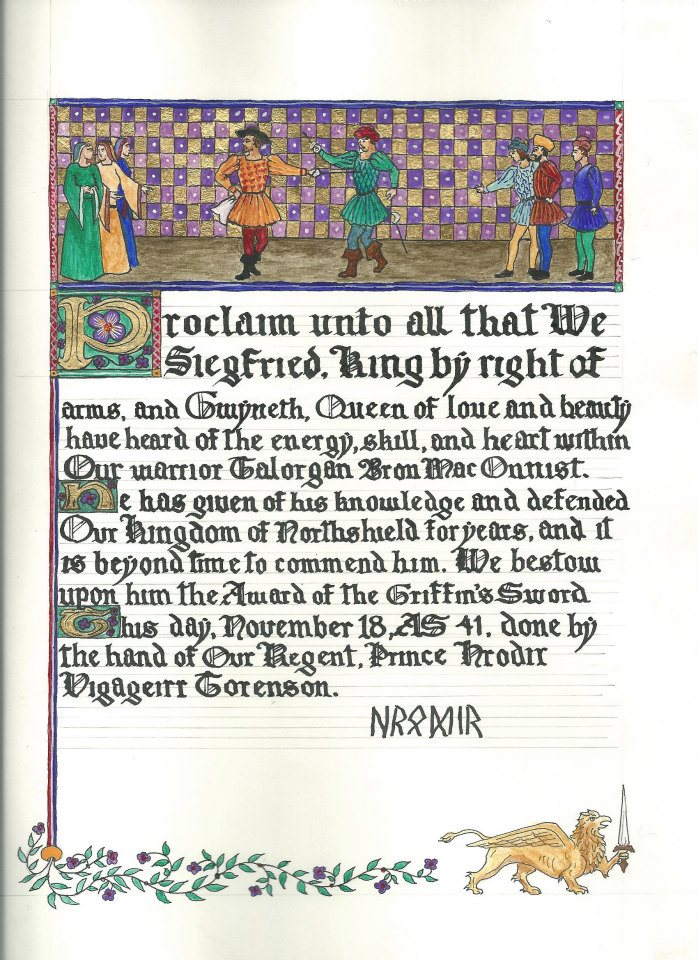 Proclaim unto all that We
Siegfried, King by right of
arms, and Gwyneth, Queen of love and beauty
have heard of the energy, skill, and heart within
Our warrior Talorgan Bron Mac Onuist.
He has given of his knowledge and defended
Our Kingdom of Northshield for years, and it
is beyond time to commend him. We bestow
upon him the Award of the Griffin's Sword
This day, November 18, AS 41, done by
the hand of Our Regent, Prince Hrodir
Vigageirr Torenson.
ᚺᚱᛟᛞᛁᚱ